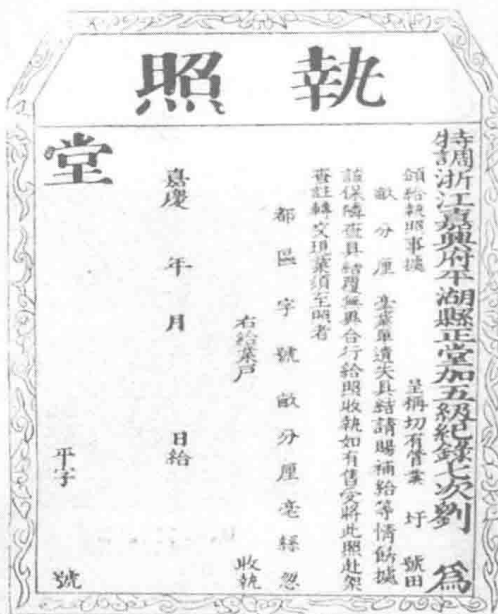 執照
特調浙江嘉興府平湖縣正堂加五級紀錄七次劉 爲
頒給執照事據 呈稱切有管業 圩 號田
畝 分 厘 毫業單遺失具結請賜補給等情飭據
該保隣查具結覆無異合行給照收執如有售賣將此照赴架
查註轉交現業須至照者
都 區 字 號 畝 分 厘 毫 絲 忽
右給業戶 收執
嘉慶 年 月 日給
平字 號
堂